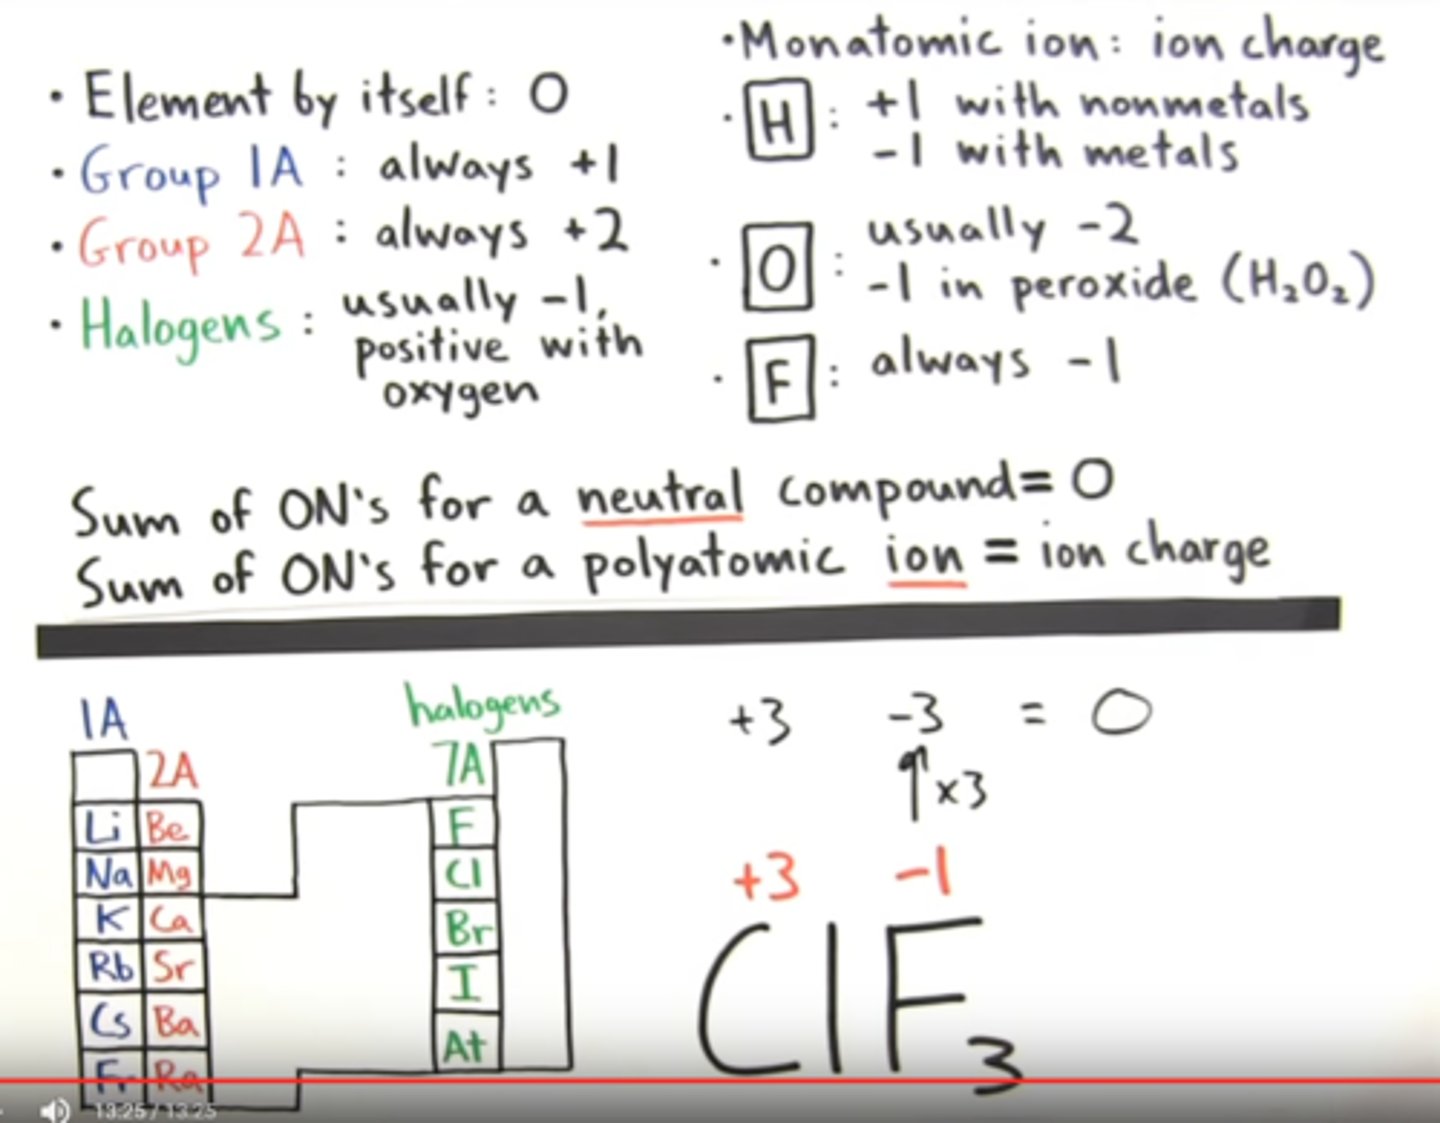 • Element by itself: 0
• Group 1A : always +1
• Group 2A : always +2
• Halogens : usually -1,
positive with
oxygen
• Monatomic ion: ion charge
• H : +1 with nonmetals
-1 with metals
• O : usually -2
-1 in peroxide (H₂O₂)
• F : always -1
Sum of ON's for a neutral compound= 0
Sum of ON's for a polyatomic ion = ion charge
1A
2A
Li Be
Na Mg
K Ca
Rb Sr
Cs Ba
Fr Ra
halogens
7A
F
Cl
Br
I
At
+3 -3 = 0
↑x3
+3 -1
ClF₃
13:25 / 13:25